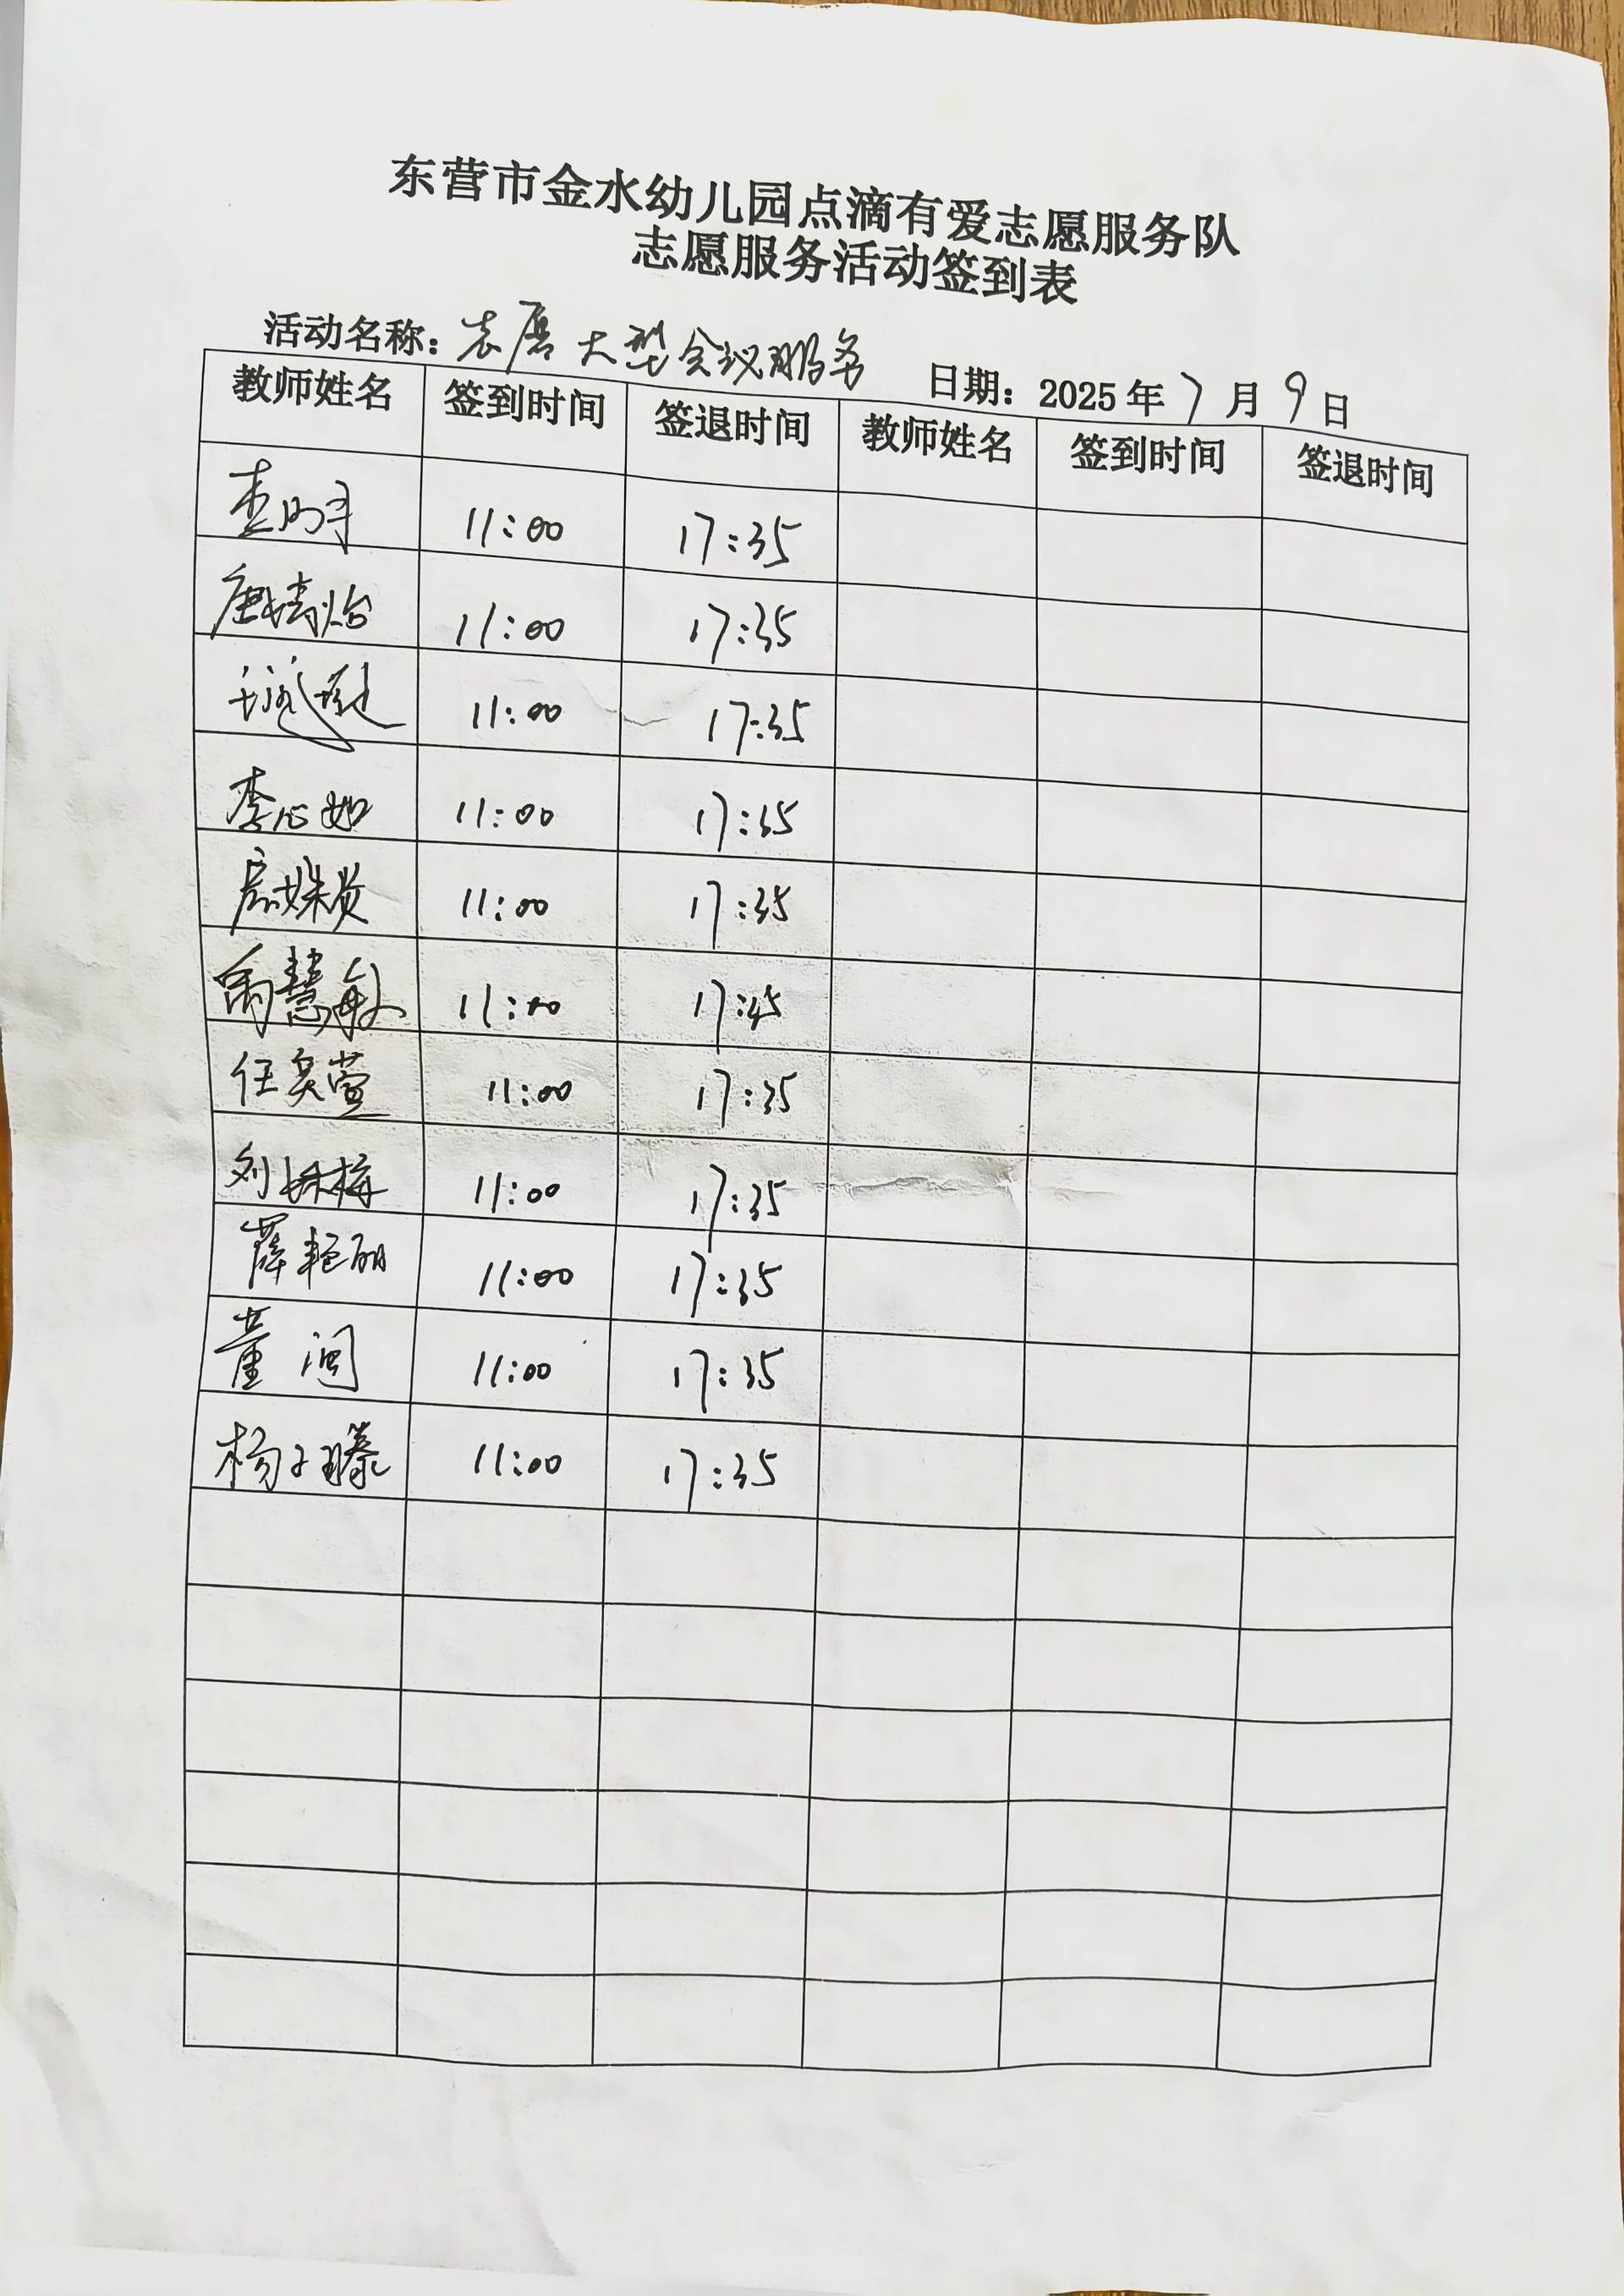 东营市金水幼儿园点滴有爱志愿服务队
志愿服务活动签到表
活动名称：大型会议服务 日期：2025年7月9日
教师姓名 签到时间 签退时间 教师姓名 签到时间 签退时间
11:00 17:35
唐靖怡 11:00 17:35
11:00 17:35
李心如 11:00 17:35
11:00 17:35
禹慧敏 11:00 17:45
任奕萱 11:00 17:35
刘姝梅 11:00 17:35
薛艳丽 11:00 17:35
董闽 11:00 17:35
杨子滕 11:00 17:35